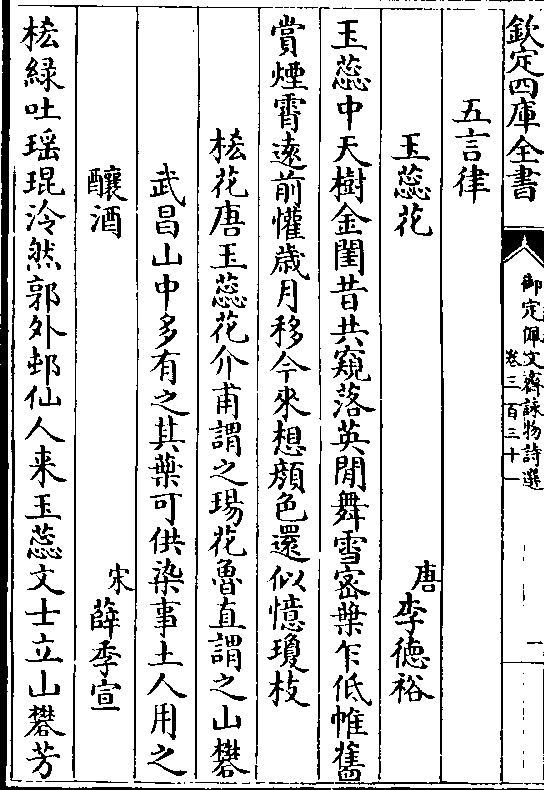 欽定四庫全書
御定佩文齋詠物詩選
卷三百三十一
五言律
玉蕊花
唐李德裕
玉蕊中天樹金閨昔共窺落英閒舞雪密葉乍低帷舊
賞煙霄遠前懽歲月移今來想顏色還似憶瓊枝
桳花唐玉蕊花介甫謂之瑒花魯直謂之山礬
武昌山中多有之其葉可供染事土人用之
釀酒
宋薛季宣
桳綠吐瑶琨泠然郭外邨仙人来玉蕊文士立山礬芳